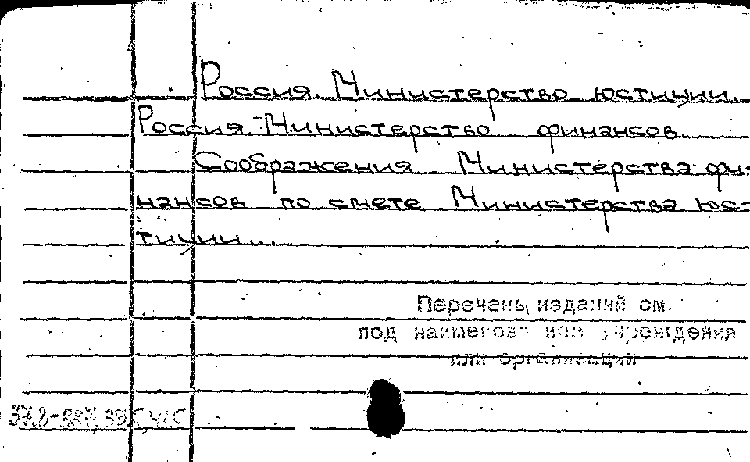 Россия. Министерство юстиции.
Россия. Министерство финансов.
Соображения Министерства фи-
нансов по смете Министерства юс-
тиции...
Перечень изданий см.
под наименованием учреждения
или организации